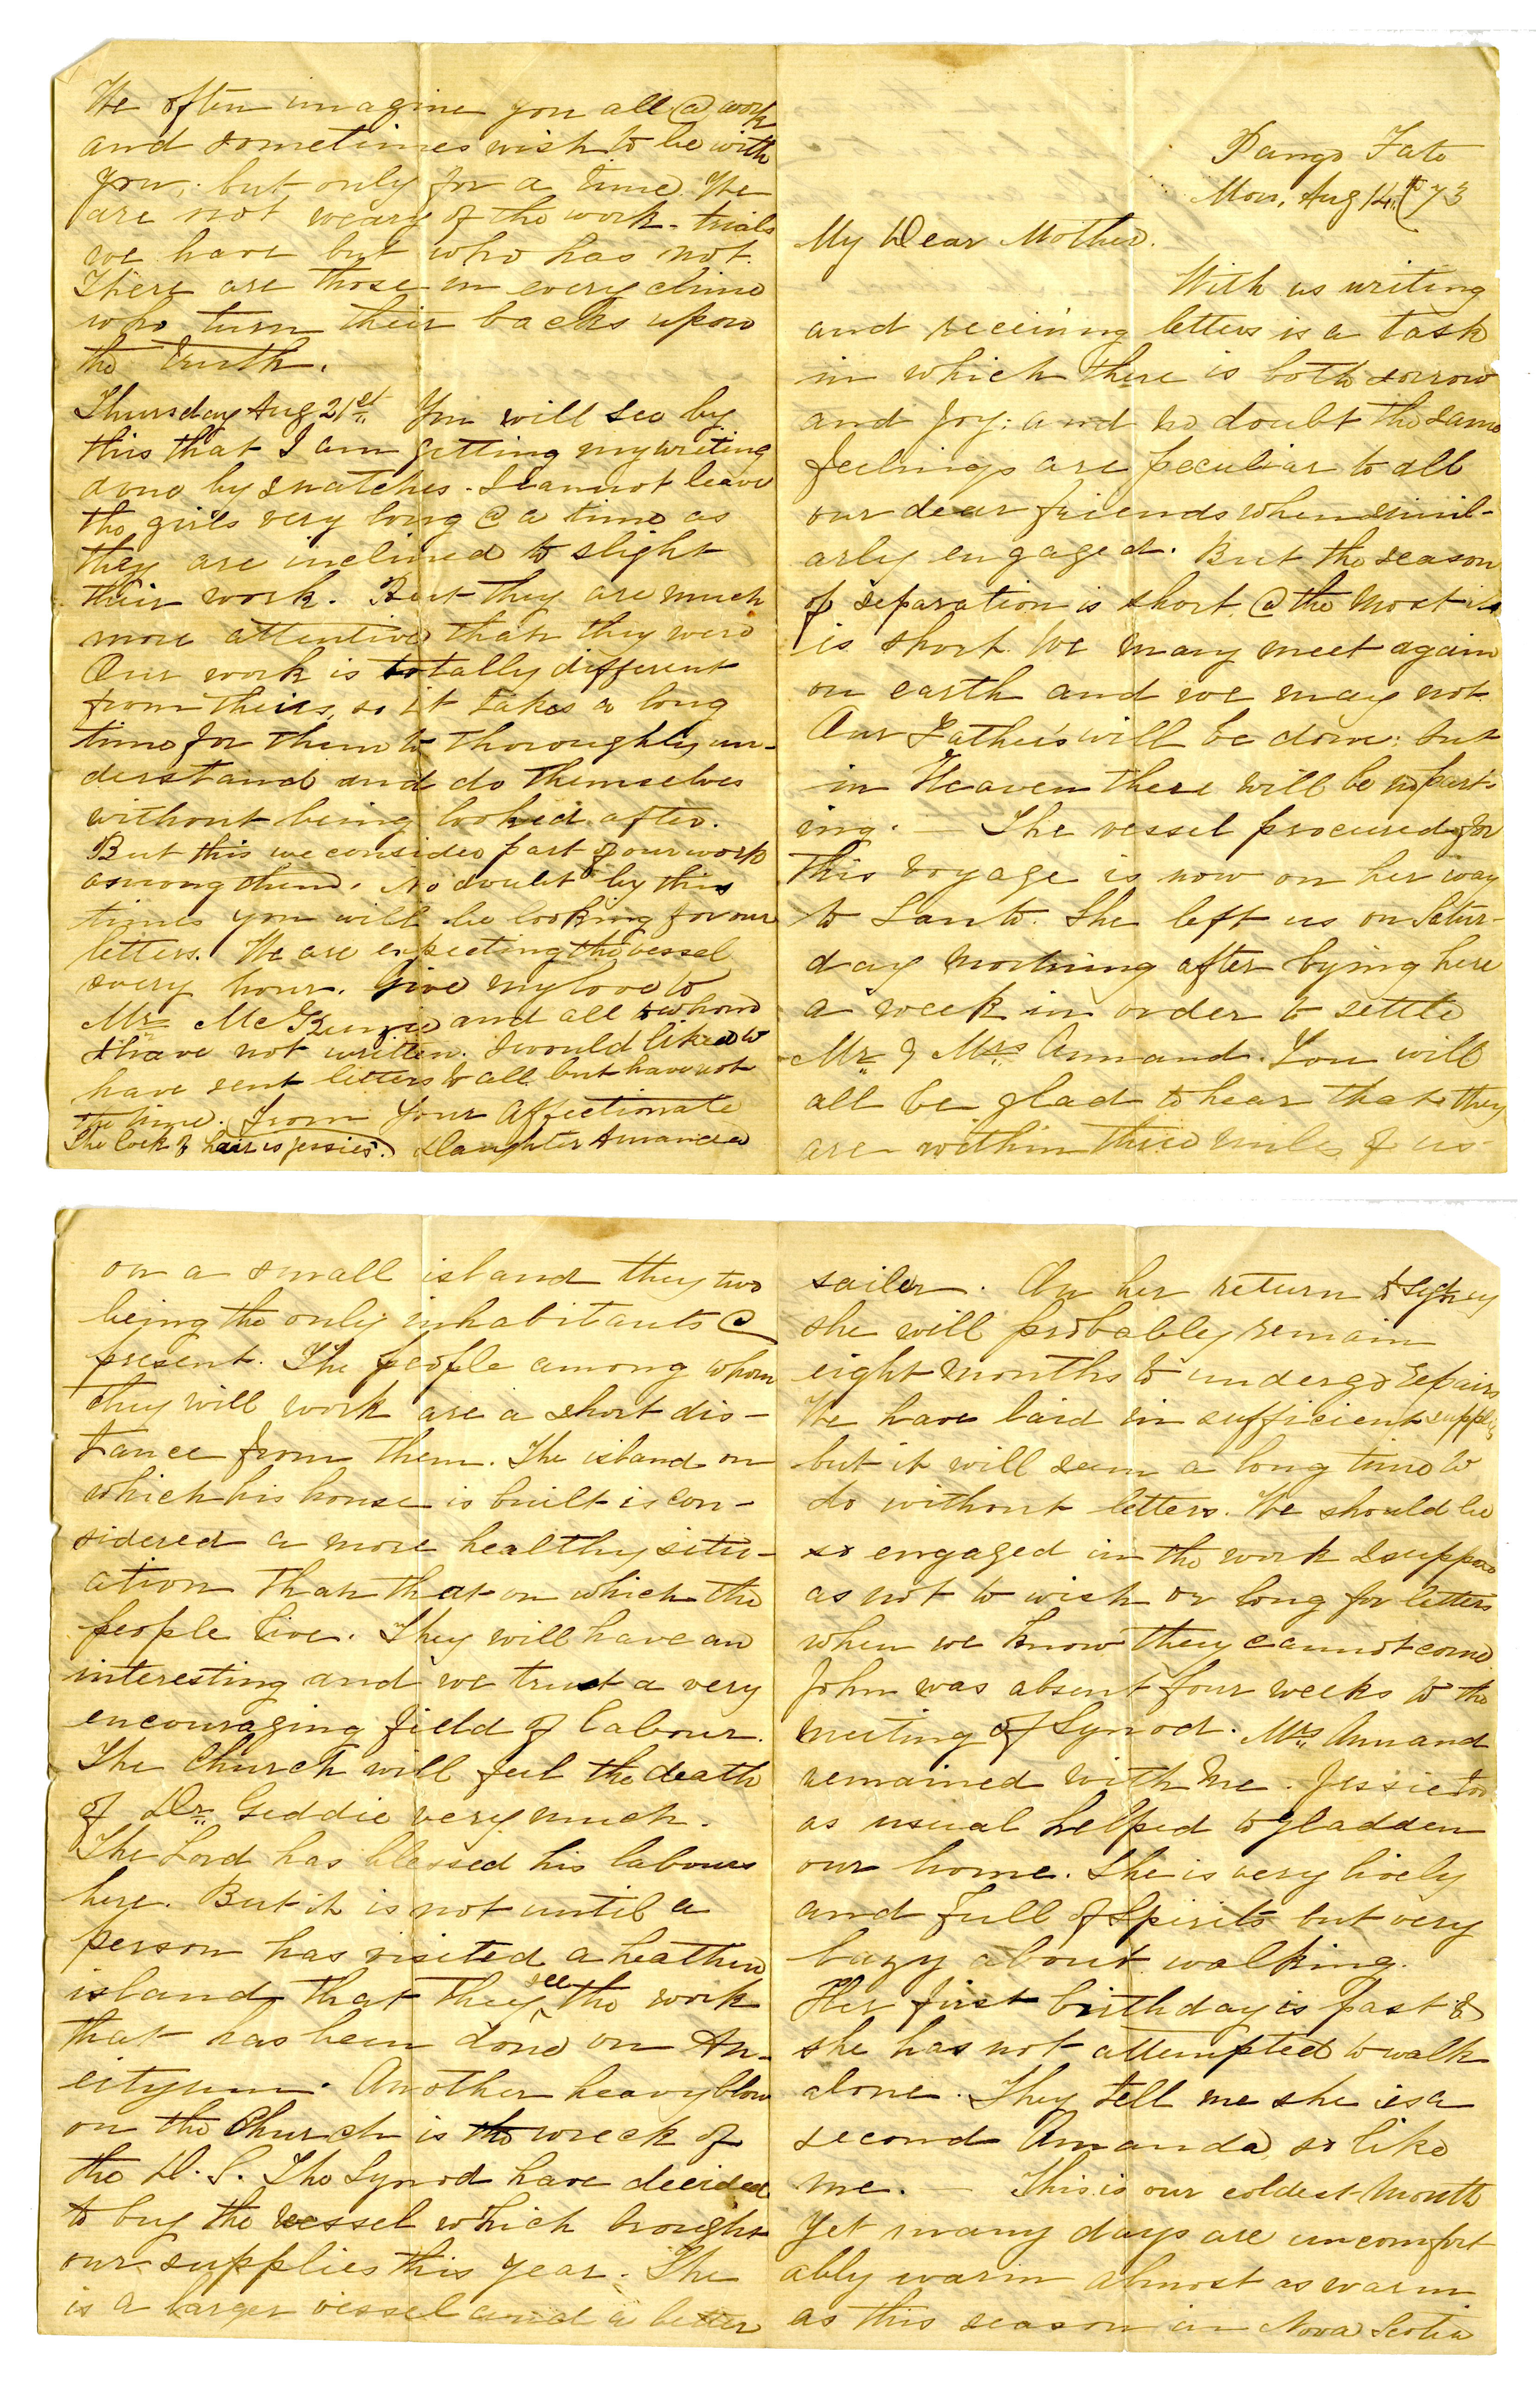 Pango Fate
Mon. Aug 14th /73
My Dear Mother.
With us writing
and receiving letters is a task
in which there is both sorrow
and joy; and no doubt the same
feelings are peculiar to all
our dear friends when simil-
arly engaged. But the season
of separation is short @ the most it
is short. We many meet again
on earth and we may not.
Our Father's will be done; but
in Heaven there will be no part-
ing. — The vessel procured for
this voyage is now on her way
to Santo. She left us on Satur-
day morning after lying here
a week in order to settle
Mr. & Mrs. Annand. You will
all be glad to hear that they
are within three miles of us
on a small island they two
being the only inhabitants @
present. The people among whom
they will work are a short dis-
tance from them. The island on
which his house is built is con-
sidered a more healthy situ-
ation than that on which the
people live. They will have an
interesting and we trust a very
encouraging field of labour.
The Church will feel the death
of Dr. Geddie very much.
The Lord has blessed his labours
here. But it is not until a
person has visited a heathen
island that they see the work
that has been done on An-
eityum. Another heavy blow
on the Church is the wreck of
the D. S. The Synod have decided
to buy the vessel which brought
our supplies this year. She
is a larger vessel and a better
sailer. On her return to Sydney
she will probabley remain
eight months to undergo repairs
We have laid in sufficient supplies
but it will seem a long time to
do without letters. We should be
so engaged in the work I suppose
as not to wish or long for letters
when we know they cannot come.
John was absent four weeks to the
meeting of Synod. Mrs. Annand
remained with me. Jessie too
as usual helped to gladden
our home. She is very lively
and full of spirits but very
lazy about walking.
Her first birthday is past &
she has not attempted to walk
alone. They tell me she is a
second Amanda, so like
me. — This is our coldest month
yet many days are uncomfort
ably warm almost as warm
as this season in Nova Scotia
We often imagine you all @ work
and sometimes wish to be with
you; but only for a time. We
are not weary of the work - trials
we have but who has not.
There are those in every clime
who turn their backs upon
the truth.
Thursday Aug 21st. You will see by
this that I am getting my writing
done by snatches. I cannot leave
the girls very long @ a time as
they are inclined to slight
their work. But they are much
more attentive than they were
Our work is totally different
from theirs, so it takes a long
time for them to thoroughly un-
derstand and do themselves
without being looked after.
But this we consider part of our work
among them. No doubt by this
time you will be looking for our
letters. We are expecting the vessel
every hour. Give my love to
Mr. McKenzie and all to whom
I have not written. I would liked to
have sent letters to all but have not
the time. From Your Affectionate
Daughter Amanda
The lock of hair is Jessie's.